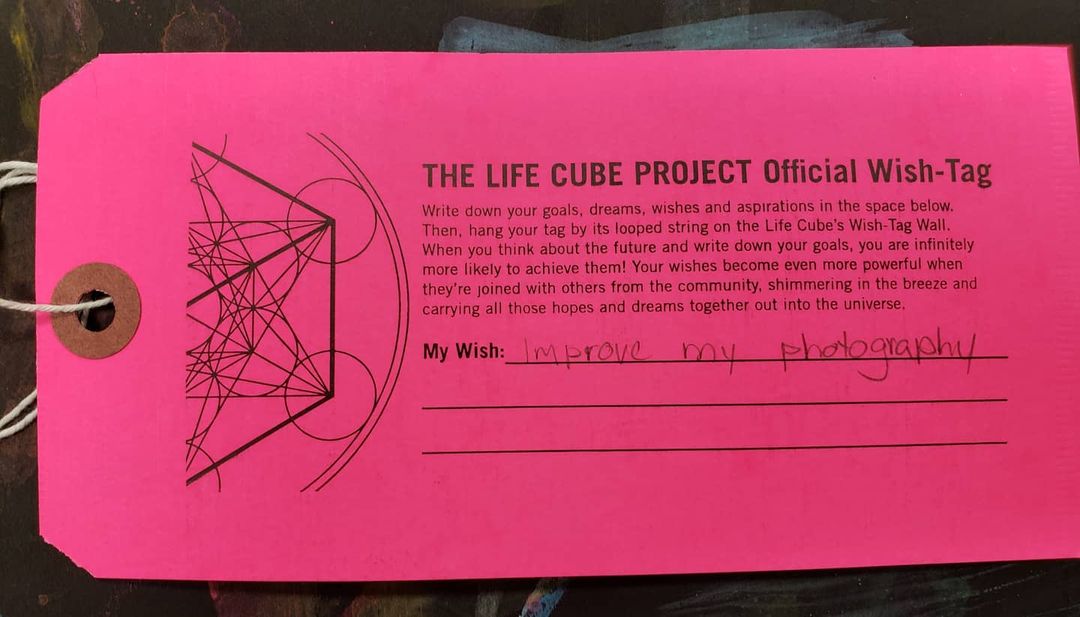 THE LIFE CUBE PROJECT Official Wish-Tag
Write down your goals, dreams, wishes and aspirations in the space below.
Then, hang your tag by its looped string on the Life Cube's Wish-Tag Wall.
When you think about the future and write down your goals, you are infinitely
more likely to achieve them! Your wishes become even more powerful when
they're joined with others from the community, shimmering in the breeze and
carrying all those hopes and dreams together out into the universe.
My Wish: Improve my photography